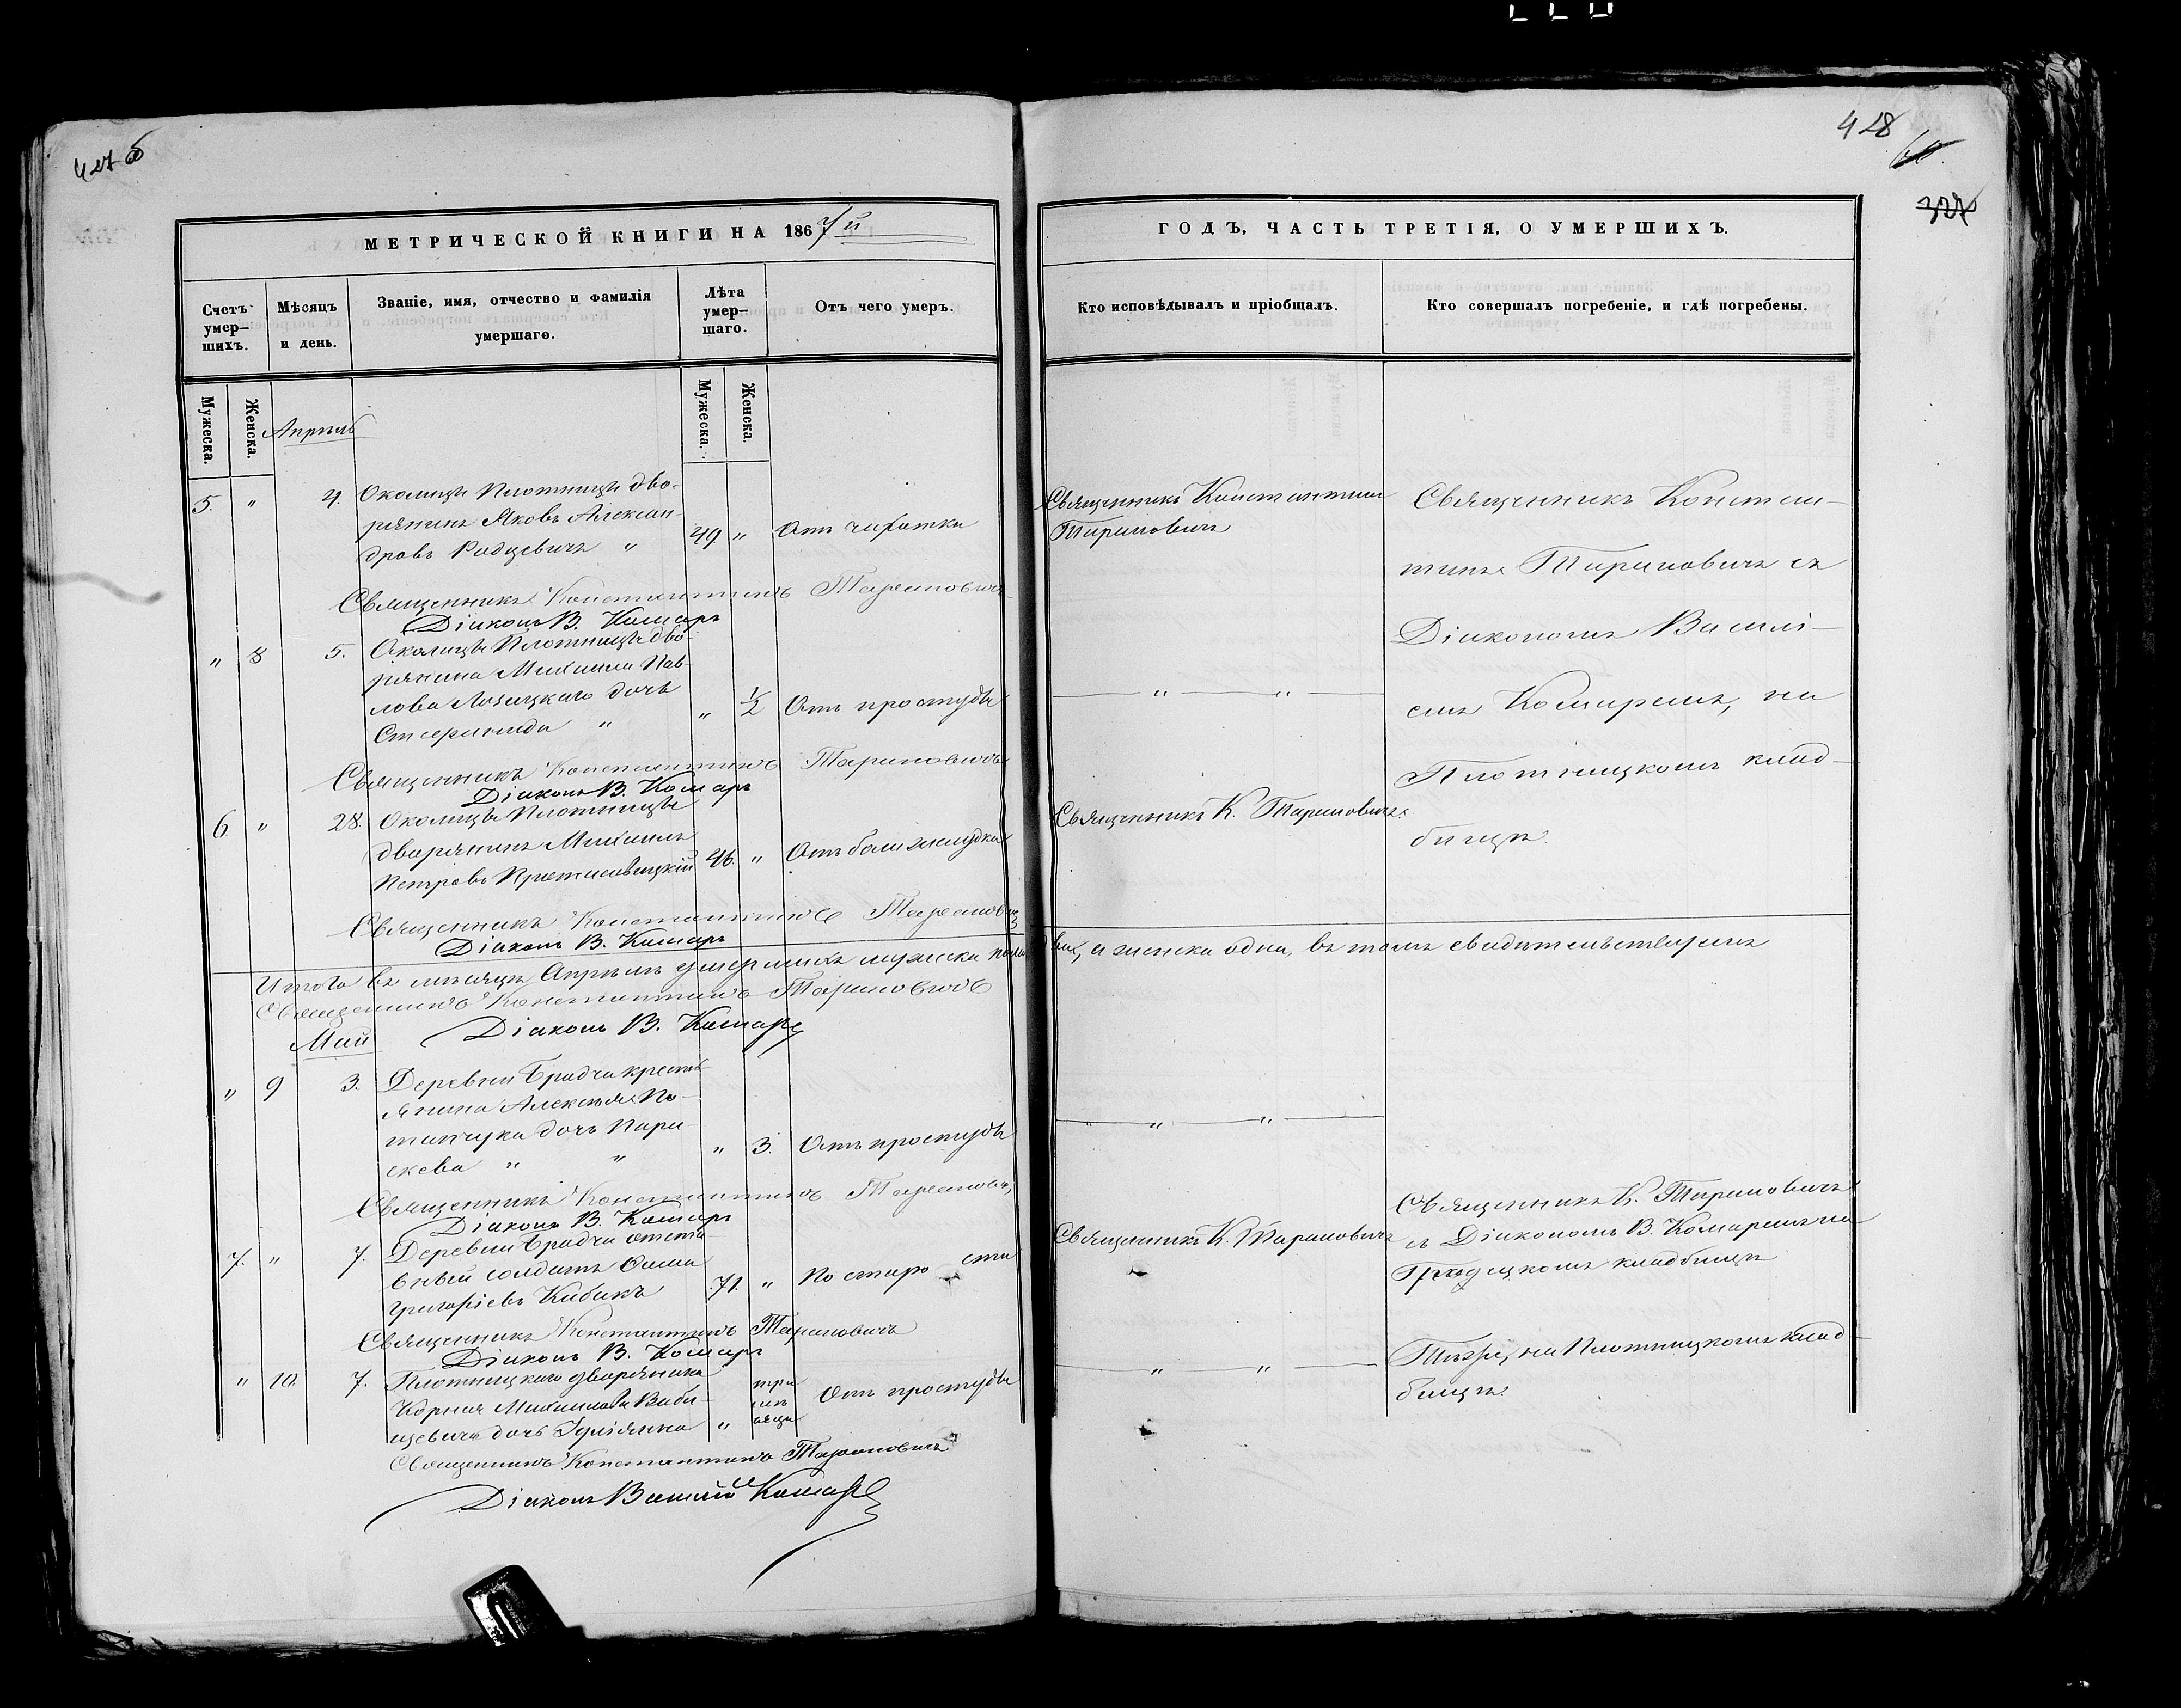 427 об
428
60.
327
МЕТРИЧЕСКОЙ КНИГИ НА 1867й
Счетъ умер—шихъ.
Мѣсяцъ и день.
Званіе, имя, отчество и фамилія умершаго.
Лѣта умер—шаго.
Отъ чего умеръ.
Мужеска.
Женска.
Мужеска.
Женска.
Апрѣль
5. " 4. Околицы Плотницы дво-
рянинъ Яковъ Алексан-
дровъ Радцевичъ " 49 " Отъ чахотки
Священникъ Константинъ Тарановичъ
Діаконъ В. Комаръ
" 8 5. Околицы Плотницы дво-
рянина Михаила Пав-
лова Лозицкаго дочь
" " ½ Отъ простуды
Священникъ Константинъ Тарановичъ
Діаконъ В. Комаръ
6 " 28. Околицы Плотницы
дворянинъ Михаилъ
Петровъ 46. " Отъ боли желудка
Священникъ Константинъ Тарановичъ
Діаконъ В. Комаръ
Итого въ мѣсяцѣ Апрѣлѣ умершихъ мужеска пола два, а женска одна, въ томъ свидѣтельствуемъ
Священникъ Константинъ Тарановичъ
Діаконъ В. Комаръ
Май
" 9 3. Деревни Брадча кресть-
янина Алексѣя По-
тапчука дочь Пара-
скева " " " 3. Отъ простуды
Священникъ Константинъ Тарановичъ
Діаконъ В. Комаръ
7. " 7. Деревни Брадча отста-
вный солдатъ Савва
Григорієвъ Кибикъ 71. " По старости
Священникъ Константинъ Тарановичъ
Діаконъ В. Комаръ
" 10. 7. Плотницкаго дворянина
Корнея Михаилова Баби-
цевича дочь Іуліянна " три мѣсяца Отъ простуды
Священникъ Константинъ Тарановичъ
Діаконъ Василій Комаръ
ГОДЪ, ЧАСТЬ ТРЕТІЯ, О УМЕРШИХЪ.
Кто исповѣдывалъ и пріобщалъ.
Кто совершалъ погребеніе, и гдѣ погребены.
Священникъ Константинъ
Тарановичъ
" "
Священникъ К. Тарановичъ
" "
Священникъ К. Тарановичъ
" "
Священникъ Констан—
тинъ Тарановичъ съ
Діакономъ Василі—
емъ Комаремъ, на
Плотницкомъ клад—
бищѣ.
Священникъ К. Тарановичъ
съ Діакономъ В. Комаремъ на
кладбищѣ
Тѣже, на Плотницкомъ клад—
бищѣ.